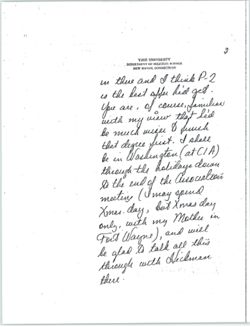 2
YALE UNIVERSITY
DEPARTMENT OF POLITICAL SCIENCE
NEW HAVEN, CONNECTICUT
in there and I think P-2
is the best offer he'd get.
You are, of course, familiar
with my view that he'd
be much wiser to finish
that degree first. I shall
be in Washington (at CIA)
through the holidays down
to the end of the Association
meeting (I may spend
Xmas day, but Xmas day
only, with my Mother in
Fort Wayne), and will
be glad to talk all this
through with
there.